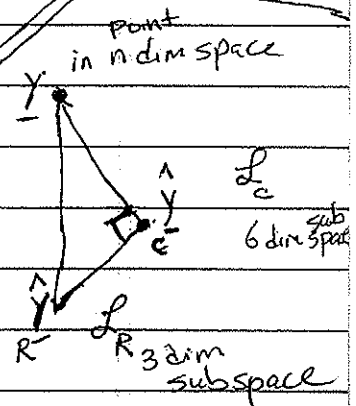 point
in n dim space
Y
ℒc
Ŷc
6 dim sub
spat
ŶR
ℒR 3 dim
subspace